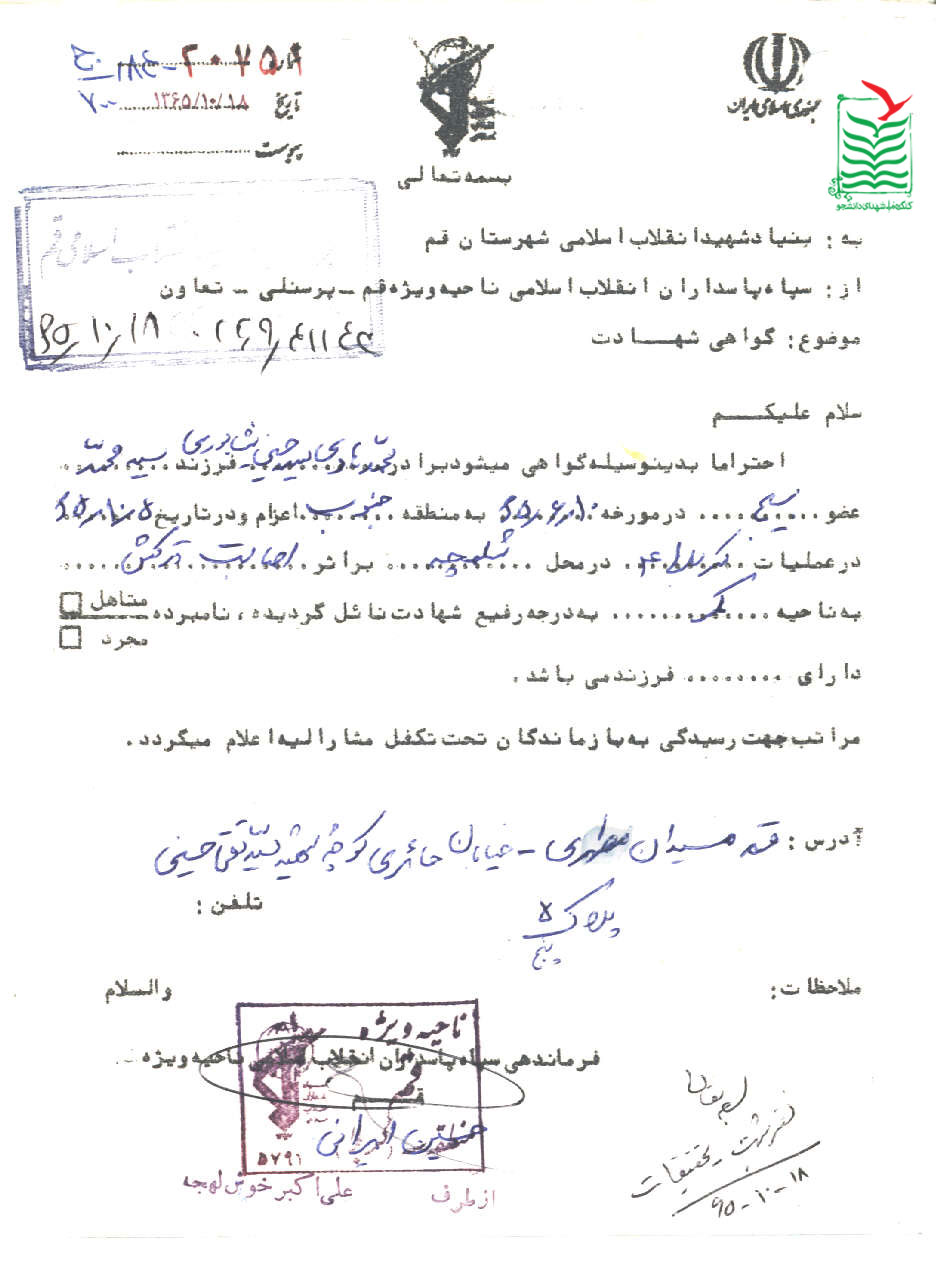 جمهوری اسلامی ایران
شماره
تاریخ ۱۳۶۵/۱۰/۱۸
پیوست
کنگره ملی شهدای دانشجو
بسمه تعالی
به: بنیاد شهید انقلاب اسلامی شهرستان قم
از: سپاه پاسداران انقلاب اسلامی ناحیه ویژه قم - پرسنلی - تعاون
موضوع: گواهی شهادت
۶۵/۱۰/۱۸
سلام علیکم
احتراما بدینوسیله گواهی میشود برادر محمد هادی سید حسنی نشابوری فرزند سید محمد
عضو بسیج در مورخه به منطقه جنوب اعزام و در تاریخ
در عملیات کربلای ۴ در محل شلمچه بر اثر اصابت ترکش
به ناحیه کمر به درجه رفیع شهادت نائل گردیده، نامبرده متاهل
مجرد
دارای ........ فرزند می باشد.
مراتب جهت رسیدگی به بازماندگان تحت تکفل مشارالیه اعلام میگردد.
آدرس: قم میدان مطهری - خیابان حائری کوچه شهید سید تقی حسینی
پلاک ۵
پنج
تلفن:
ملاحظات:
والسلام
ناحیه ویژه
فرماندهی سپاه پاسداران انقلاب اسلامی ناحیه ویژه
قم
۵۷۹۱
از طرف علی اکبر خوش لهجه
تحقیقات
۶۵-۱۰-۱۸